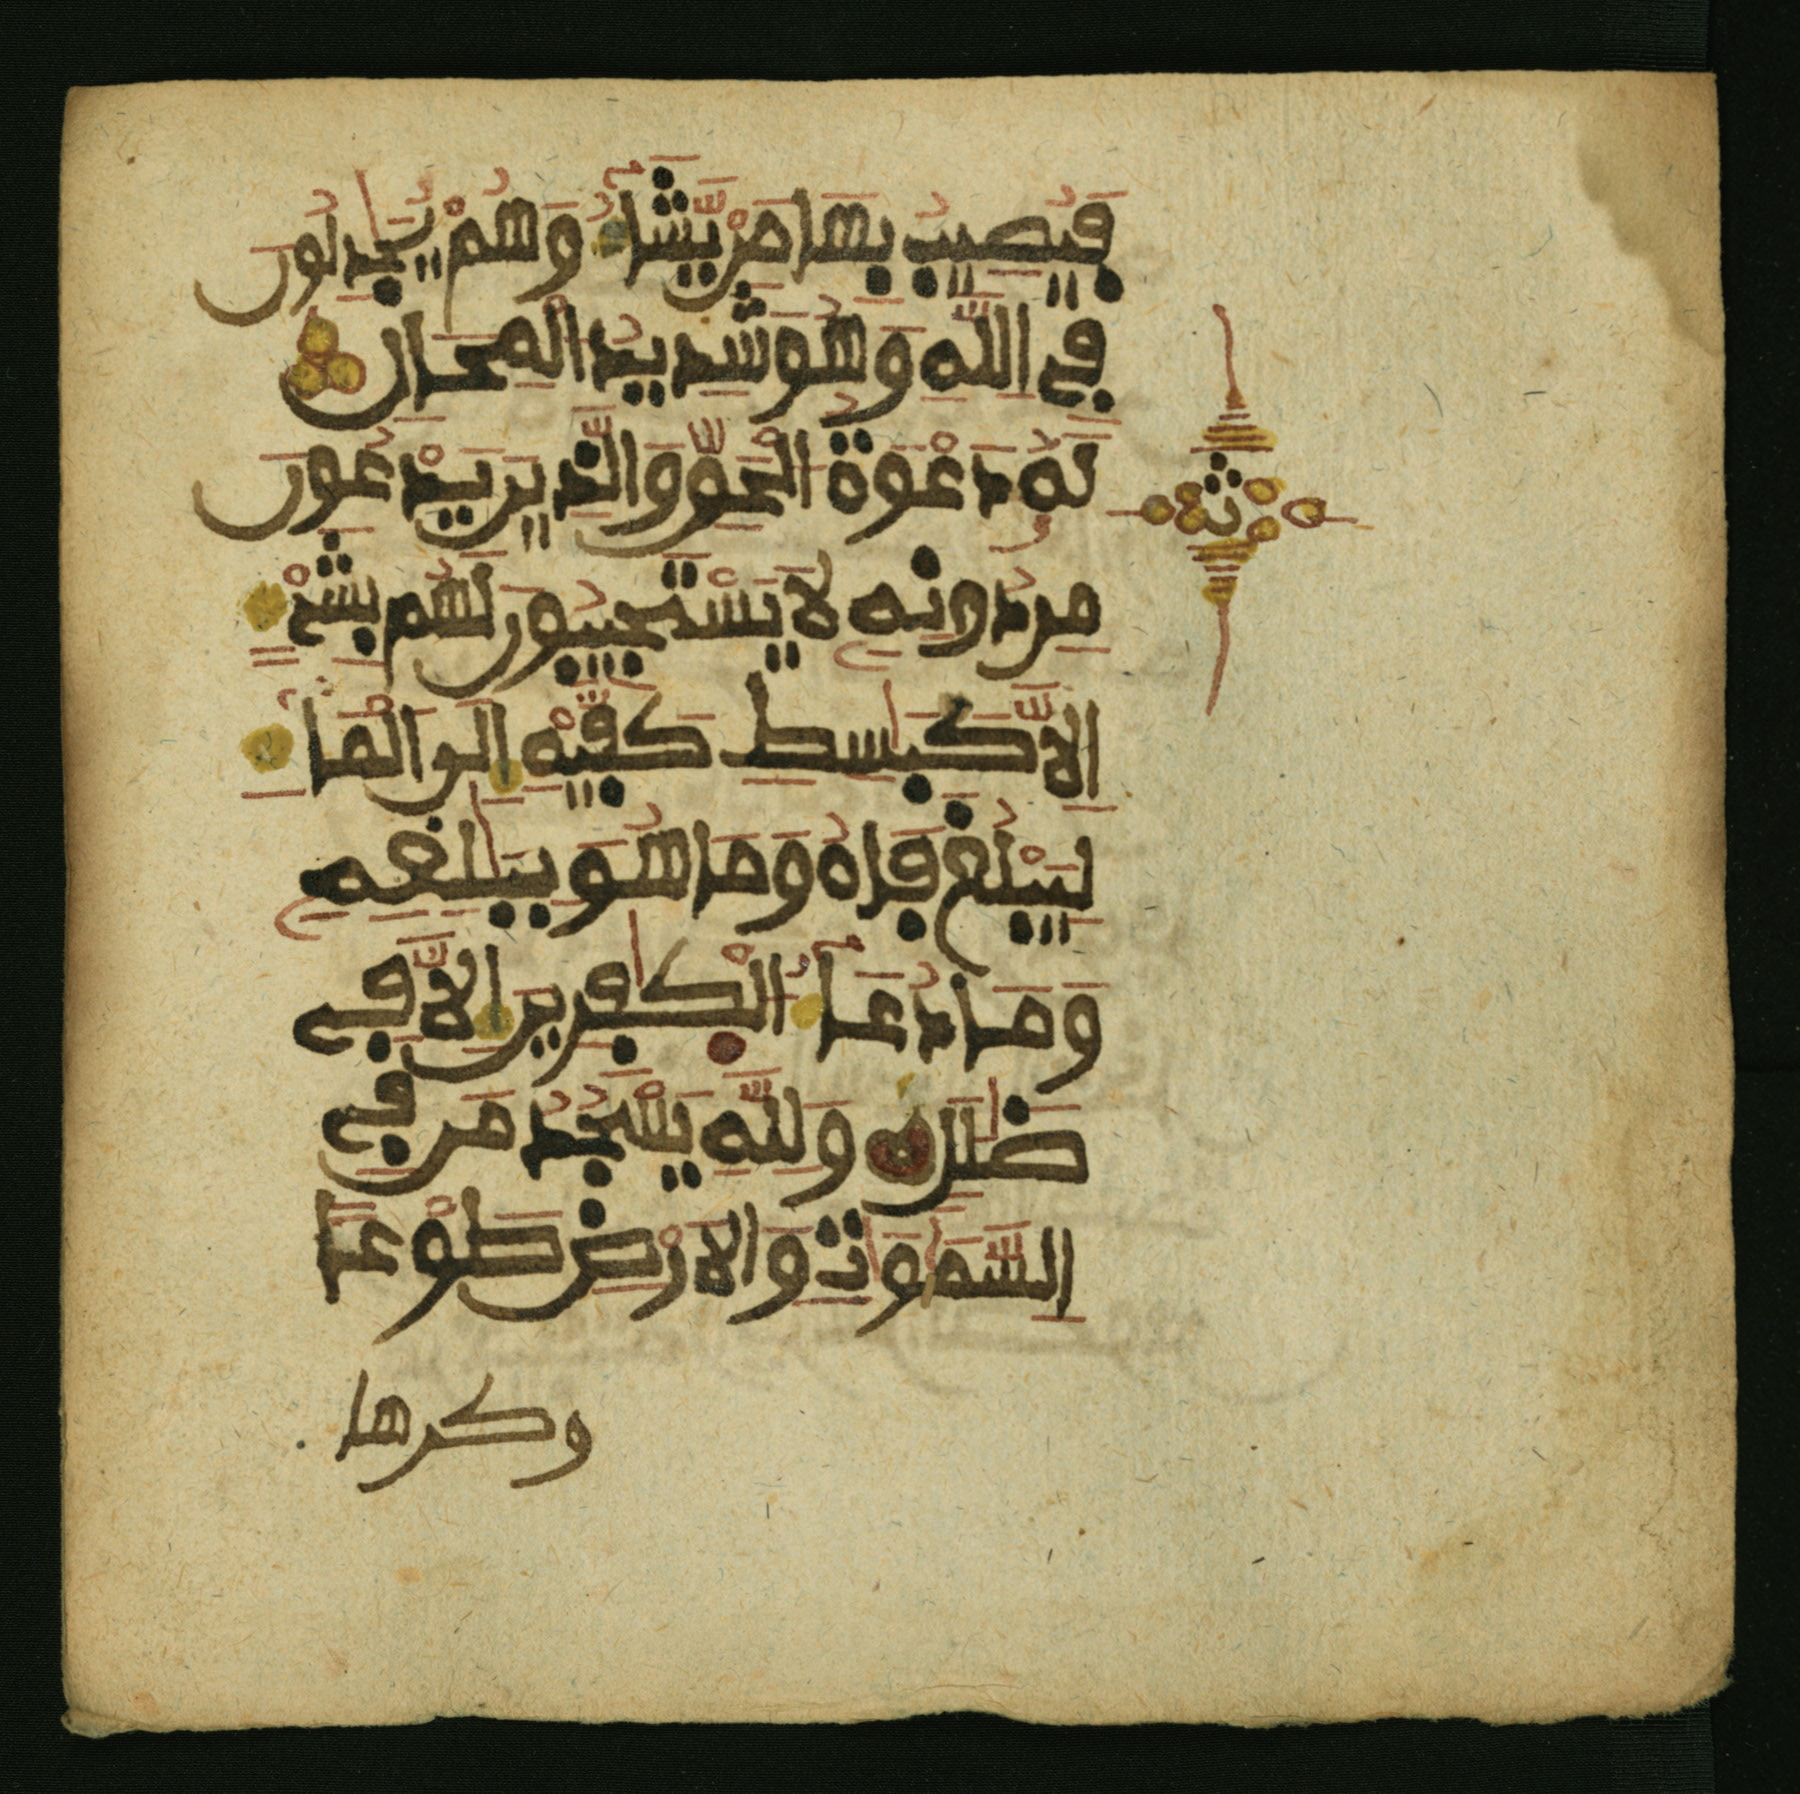 فَيُصِيبُ بِهَا مَنْ يَّشَآءُ وَهُمْ يُجَٰدِلُونَ
فِي اللَّهِ وَهُوَ شَدِيدُ الْمِحَالِ
لَهُ دَعْوَةُ الْحَقِّ وَالَّذِينَ يَدْعُونَ
ثمن
مِن دُونِهِ لَا يَسْتَجِيبُونَ لَهُم بِشَيْءٍ
إِلَّا كَبَٰسِطِ كَفَّيْهِ إِلَى الْمَآءِ
لِيَبْلُغَ فَاهُ وَمَا هُوَ بِبَٰلِغِهِ
وَمَا دُعَآءُ الْكَٰفِرِينَ إِلَّا فِي
ضَلَٰلٍ وَلِلَّهِ يَسْجُدُ مَن فِي
السَّمَٰوَٰتِ وَالْأَرْضِ طَوْعًا
وكرها